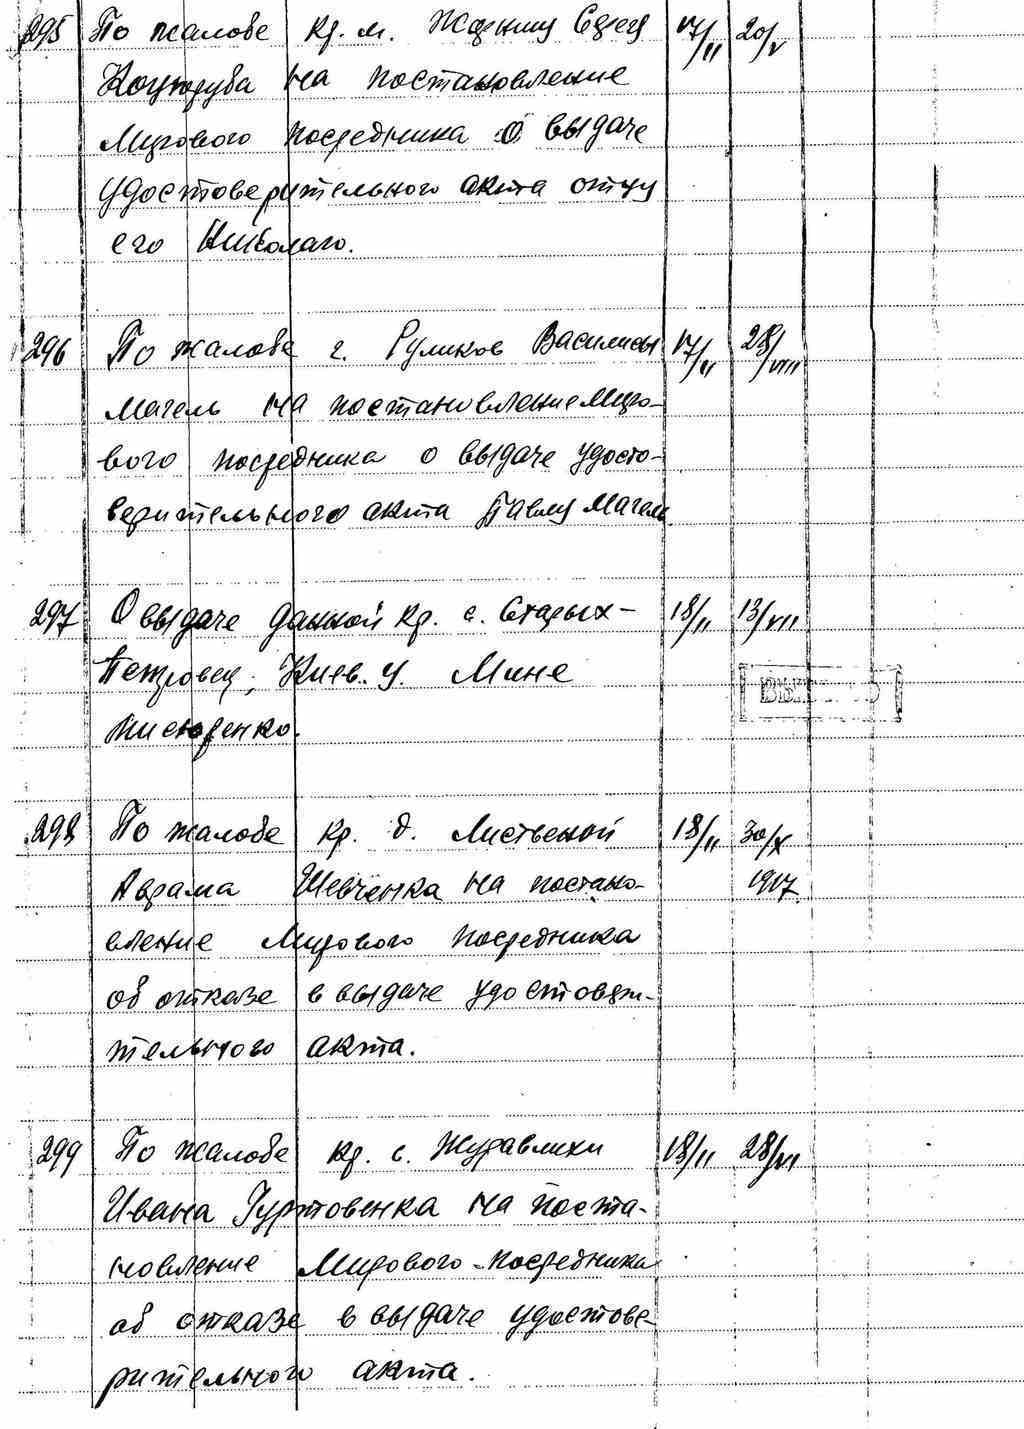 295 По жалобе кр. м. 17/II 20/V
на постановление
Мирового посредника о выдаче
удостоверительного акта отцу
его Николаю.
296 По жалобе г. Руликов Василисы 17/II 28/VIII
Магель на постановление Миро-
вого посредника о выдаче удосто-
верительного акта Павлу Магель
297 О выдаче данной кр. с. Старых- 18/II 13/VII
Петровец, Киев. у. Мине
298 По жалобе кр. д. Листвекой 18/II 30/X
Аврама Шевченка на постано- 1917.
вление Мирового посредника
об отказе в выдаче удостовери-
тельного акта.
299 По жалобе кр. с. Журавлихи 18/II 28/VI
Ивана Гуртовенка на поста-
новление Мирового посредника
об отказе в выдаче удостове-
рительного акта.